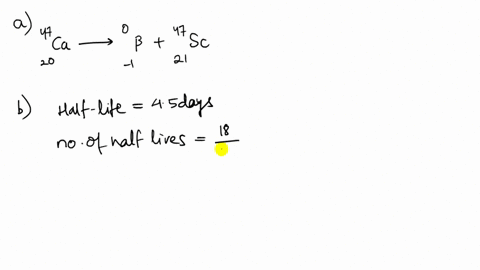 a) ⁴⁷₂₀Ca ⟶ ⁰₋₁β + ⁴⁷₂₁Sc
b) Half-life = 4.5days
no. of half lives = 18/